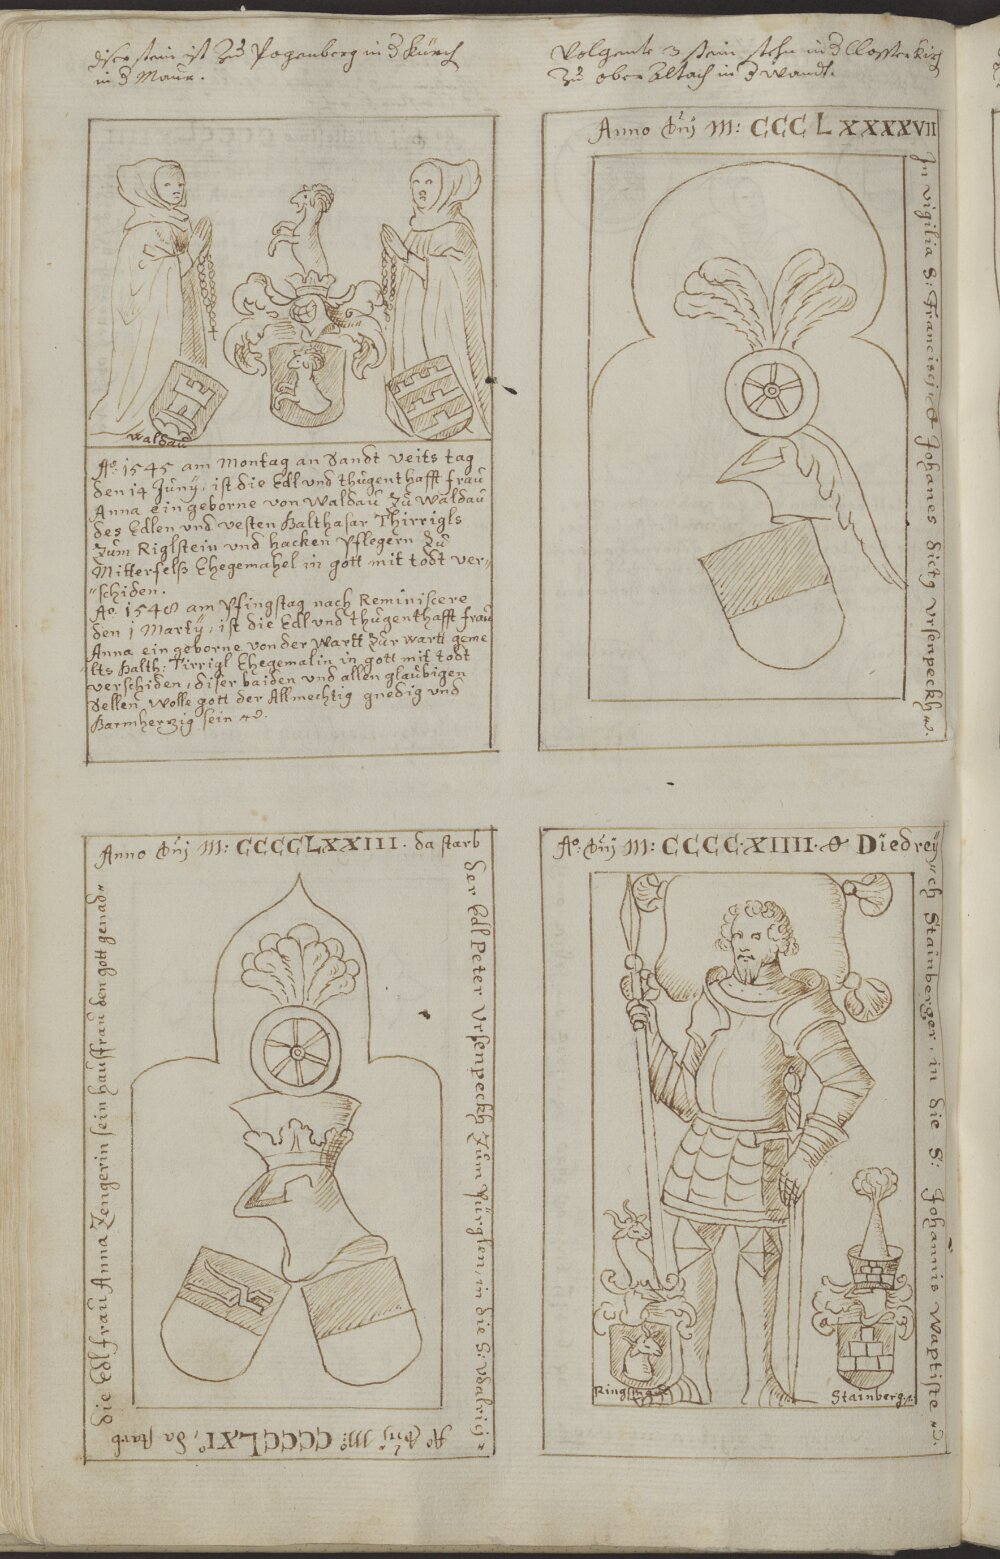 diser stein ist Zŭ Pogenberg in d Kürch
in d Maur.
Volgente 3 stein stehn in d Closter Kirch
Zŭ ober Altach in d wandt.
waldau
Ao. 1545 am Montag an Sandt veits tag
den 14 Junÿ, ist die Edl vnd thŭgenthafft frau
Anna ein geborne von Waldau Zŭ Waldau
des Edlen vnd vesten Balthasar Thirrigls
Zum Riglstein vnd hacken Pflegern Zŭ
Mitterfelß Ehegemahel in gott mit todt ver„
„schiden.
Ao. 1548 am Pfingstag nach Reminiscere
den 1 Martÿ, ist die Edl vnd thŭgenthafft frau
Anna ein geborne von der Wartt Zur wartt geme
lts Balth: Tirrigl Ehegemalin in gott mit todt
verschiden, diser baiden vnd allen glaubigen
Sellen Wolle gott der Allmechtig gnedig vnd
Barmherzig sein
Anno Dnj M: CCCLXXXXVII
In vigilia S: Francisci Johanes dictg Vrsenpeckh
Anno Dnj M: CCCCLXXIII. da starb
der Edl Peter Vrsenpeckh Zum Pürglen, in die S: Vdalricj
Ao Dnj M: CCCCLXI, da starb
die Edl frau Anna Zengerin sein hausfrau den gott genad
Ao. Dnj M: CCCCXIIII. Diedreÿ
ch Stainberger, in die S: Johannis Waptiste
Stainberg